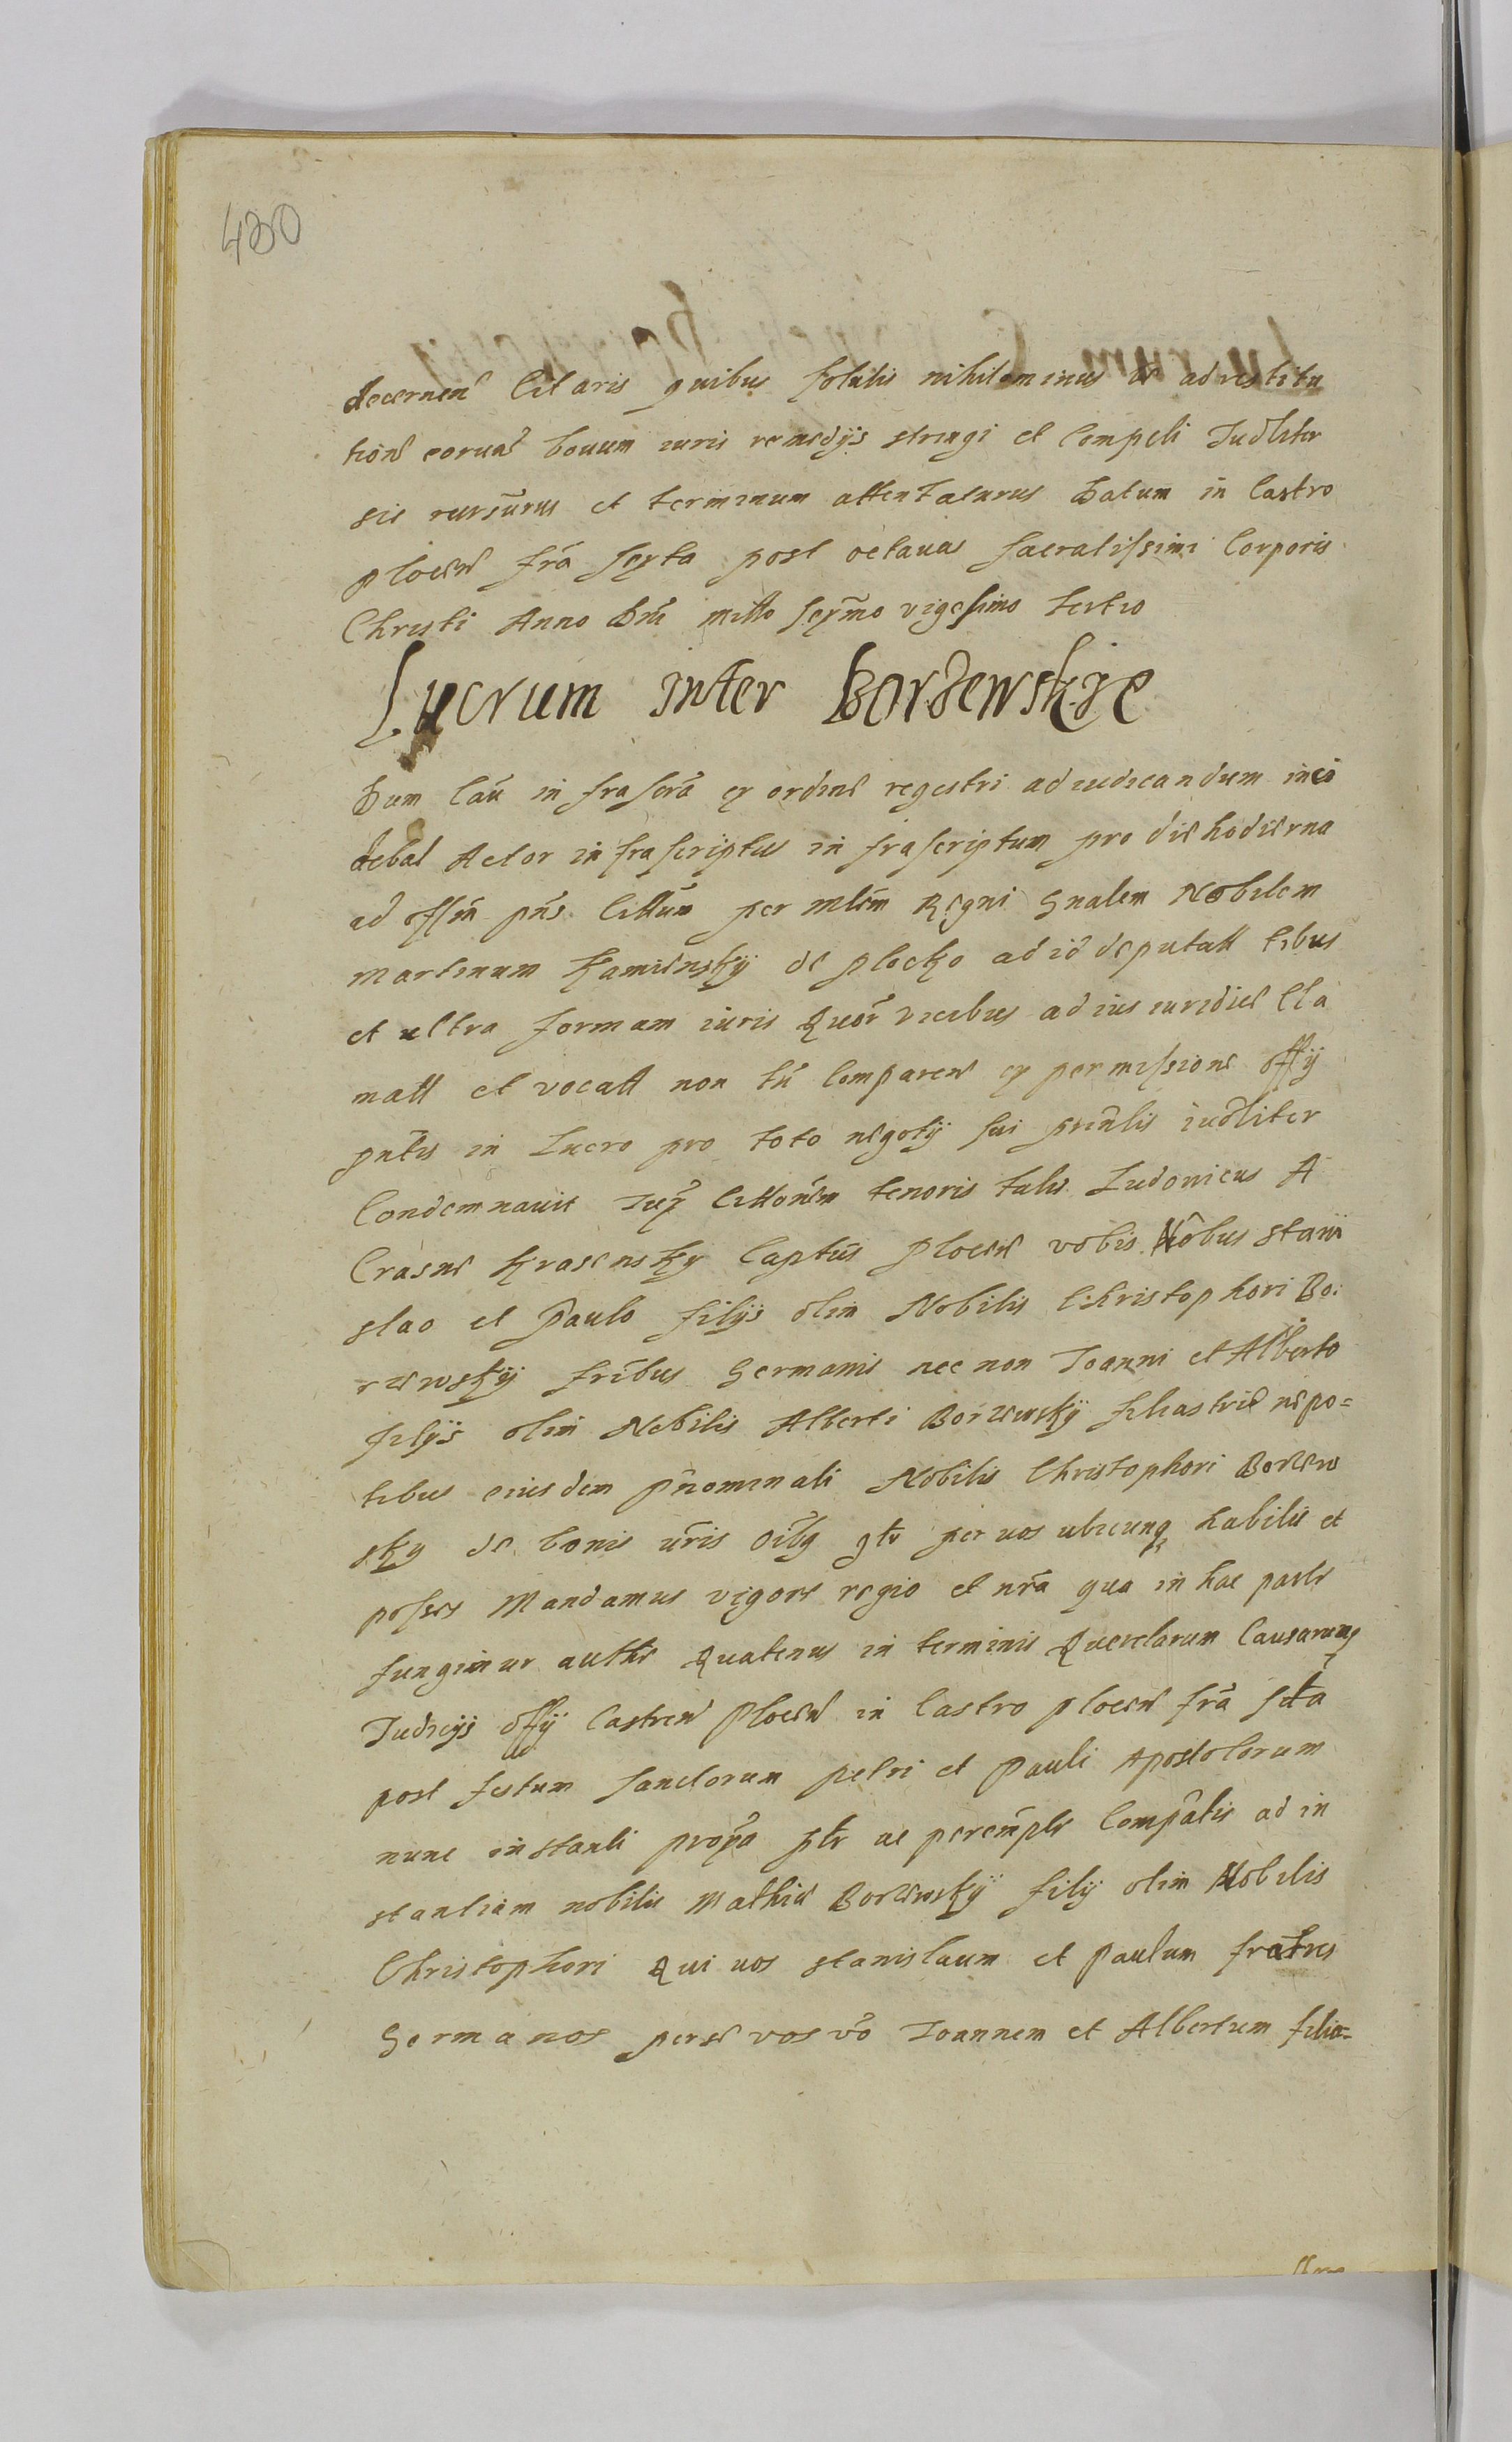 430
decernen̄ Citaris quibus solutis nihilominus et ad restitu
tione eorum bouum iuris remedijs stringi et Compeli Iudliter
sis rursurus et terminum attentaturus Datum in Castro
plocen fra sexta post octauas sacratissimi Corporis
Christi Anno Dni mllo sexmo vigesimo tertio
Lucrum inter Borzewskie
Dum Cau infrascra ex ordine regestri ad iudicandum inci
debat Actor infrascriptus infrascriptum pro die hodierna
ad offm pns Cittum per mlem Regni Gnalem Nobilem
martinum Kamiensky de plocko ad id deputatt tibus
et ultra formam iuris Quor vicibus ad ius iuridice Cla
matt et vocatt non tn Comparen ex permissione offy
pntis in Lucro pro toto negoty sui prinlis iudliter
Condemnauit Iux Cittonem tenoris talis Ludouicus A
Crasne Krasensky Captus plocen vobis Nobus stani
slao et Paulo filijs olim Nobilis Christophori Bo:
rzewsky fribus Germanis nec non Ioanni et Alberto
filijs olim Nobilis Alberti Borzewsky filiastris nepo=
tibus eiusdem pnominati Nobilis Christophori Borzew
sky de bonis vris oibq gtr per uos ubicunq habitis et
posses Mandamus vigore regio et nra qua in hac parte
fungimur autte Quatenus in terminis Querelarum Causarumq
Iudicijs offy Castren Plocen in Castro plocen fra sexta
post festum sanctorum petri et Pauli Apostolorum
nunc instanti proxa ptr ac peremptr Compatis ad in
stantiam nobilis Mathie Borzewsky fily olim Nobilis
Christophori Qui uos stanislaum et Paulum fratres
Germanos perse vos vo Ioannem et Albertum filia=